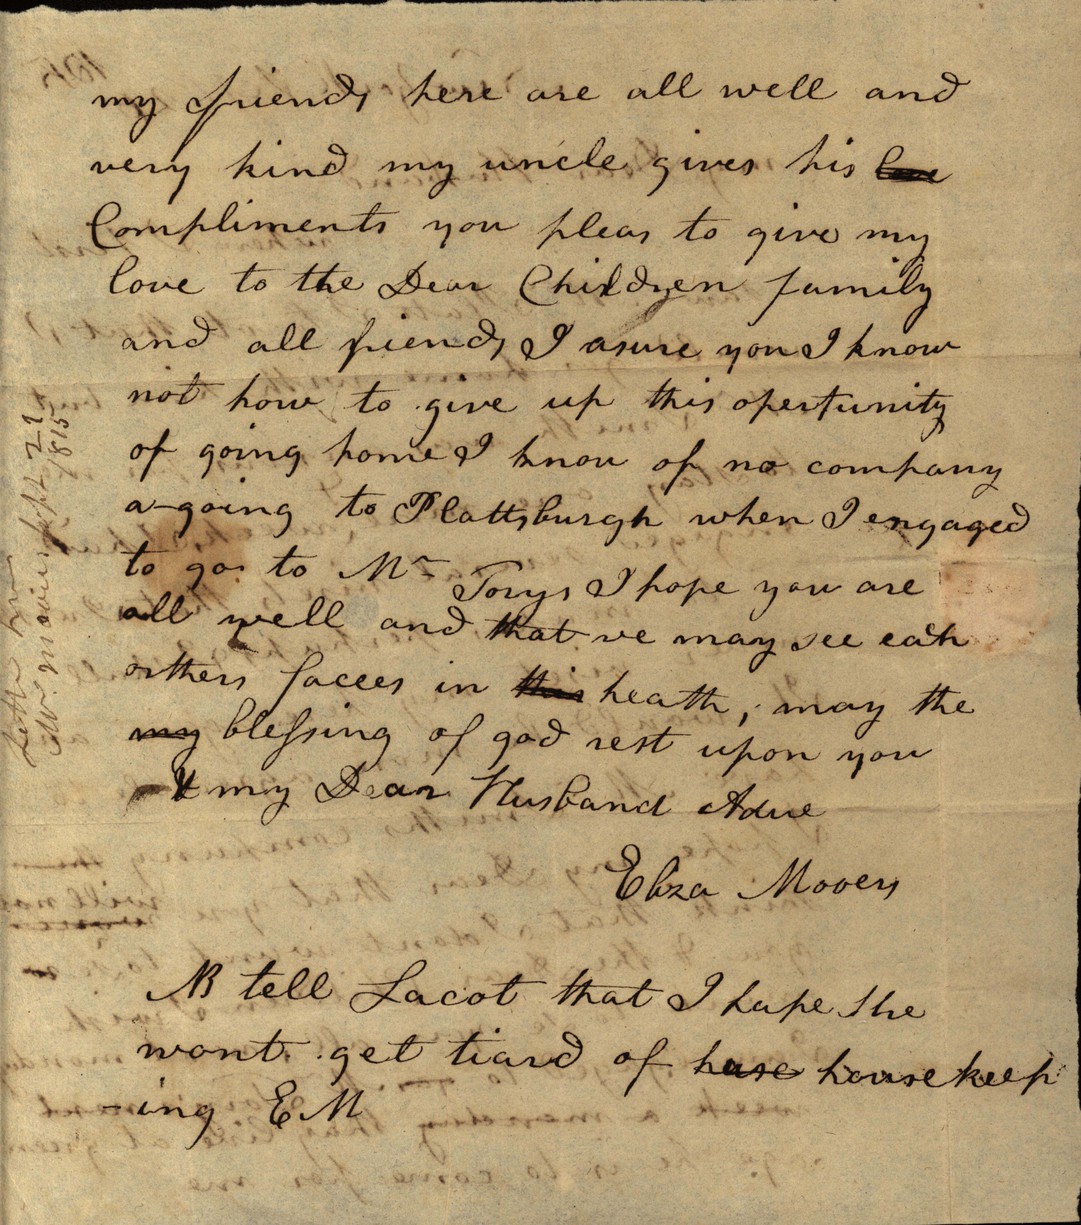 my friends here are all well and
very kind my uncle gives his love
Compliments you pleas to give my
love to the Dear Children family
and all friends I asure you I know
not how to give up this opertunity
of going home I know of no company
a going to Plattsburgh when I engaged
to go to Mr Torys I hope you are
all well and that we may see each
orthers facees in this heath, may the
my blessing of god rest upon you
my Dear Husband Adue
Eliza Mooers
NB tell Lacot that I hape she
wont get tiard of huse housekeep
-ing EM
Letter from
Mrs. Mooers Sept 21
1815